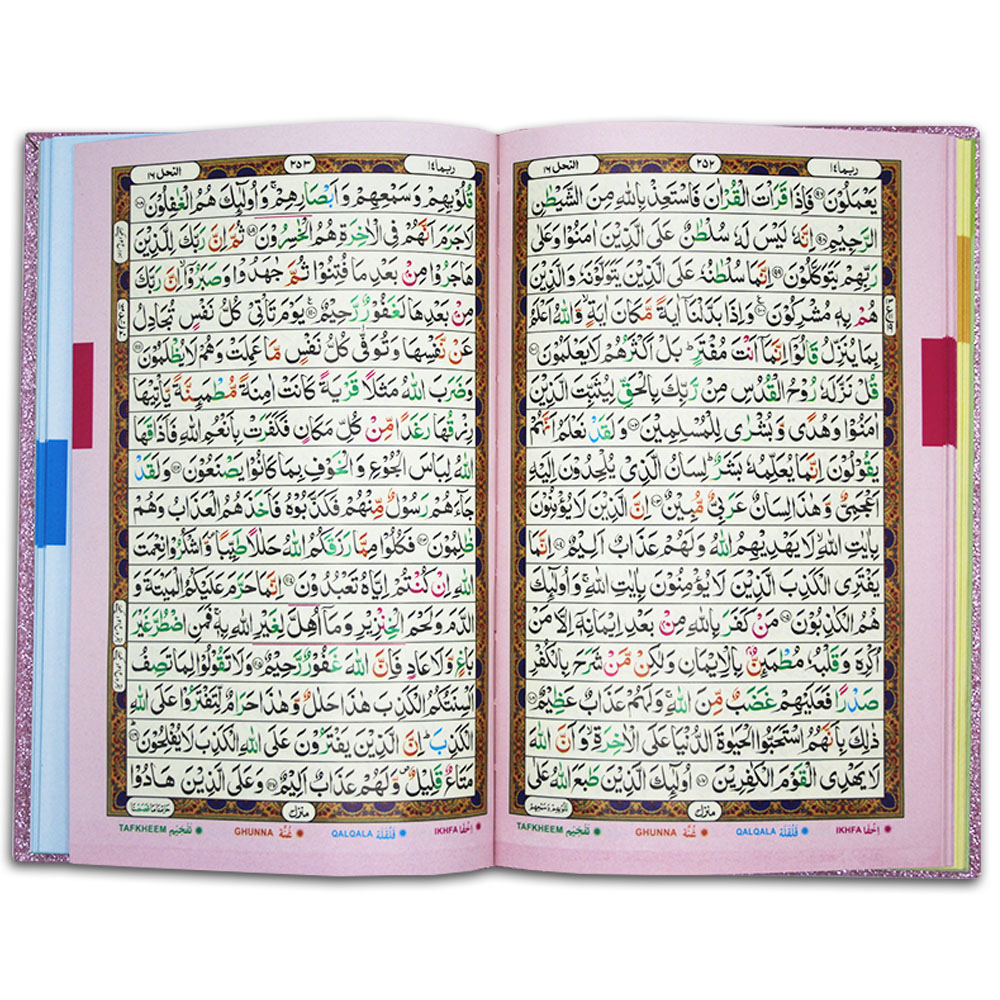 ربما ١٤
٢٥٢
النحل ١٦
يَعْمَلُوْنَ ۹۷ فَاِذَا قَرَاْتَ الْقُرْاٰنَ فَاسْتَعِذْ بِاللّٰهِ مِنَ الشَّيْطٰنِ
الرَّجِيْمِ ۹۸ اِنَّهٗ لَيْسَ لَهٗ سُلْطٰنٌ عَلَى الَّذِيْنَ اٰمَنُوْا وَعَلٰى
رَبِّهِمْ يَتَوَكَّلُوْنَ ۹۹ اِنَّمَا سُلْطٰنُهٗ عَلَى الَّذِيْنَ يَتَوَلَّوْنَهٗ وَالَّذِيْنَ
هُمْ بِهٖ مُشْرِكُوْنَ ۱۰۰ وَاِذَا بَدَّلْنَاۤ اٰيَةً مَّكَانَ اٰيَةٍ ۙ وَّاللّٰهُ اَعْلَمُ
بِمَا يُنَزِّلُ قَالُوْۤا اِنَّمَاۤ اَنْتَ مُفْتَرٍ ؕ بَلْ اَكْثَرُهُمْ لَا يَعْلَمُوْنَ ۱۰۱
قُلْ نَزَّلَهٗ رُوْحُ الْقُدُسِ مِنْ رَّبِّكَ بِالْحَقِّ لِيُثَبِّتَ الَّذِيْنَ
اٰمَنُوْا وَهُدًى وَّبُشْرٰى لِلْمُسْلِمِيْنَ ۱۰۲ وَلَقَدْ نَعْلَمُ اَنَّهُمْ
يَقُوْلُوْنَ اِنَّمَا يُعَلِّمُهٗ بَشَرٌ ؕ لِسَانُ الَّذِيْ يُلْحِدُوْنَ اِلَيْهِ
اَعْجَمِيٌّ وَّهٰذَا لِسَانٌ عَرَبِيٌّ مُّبِيْنٌ ۱۰۳ اِنَّ الَّذِيْنَ لَا يُؤْمِنُوْنَ
بِاٰيٰتِ اللّٰهِ ۙ لَا يَهْدِيْهِمُ اللّٰهُ وَلَهُمْ عَذَابٌ اَلِيْمٌ ۱۰۴ اِنَّمَا
يَفْتَرِى الْكَذِبَ الَّذِيْنَ لَا يُؤْمِنُوْنَ بِاٰيٰتِ اللّٰهِ ۚ وَاُولٰٓئِكَ
هُمُ الْكٰذِبُوْنَ ۱۰۵ مَنْ كَفَرَ بِاللّٰهِ مِنْۢ بَعْدِ اِيْمَانِهٖۤ اِلَّا مَنْ
اُكْرِهَ وَقَلْبُهٗ مُطْمَئِنٌّۢ بِالْاِيْمَانِ وَلٰكِنْ مَّنْ شَرَحَ بِالْكُفْرِ
صَدْرًا فَعَلَيْهِمْ غَضَبٌ مِّنَ اللّٰهِ ۚ وَلَهُمْ عَذَابٌ عَظِيْمٌ ۱۰۶
ذٰلِكَ بِاَنَّهُمُ اسْتَحَبُّوا الْحَيٰوةَ الدُّنْيَا عَلَى الْاٰخِرَةِ ۙ وَاَنَّ اللّٰهَ
لَا يَهْدِى الْقَوْمَ الْكٰفِرِيْنَ ۱۰۷ اُولٰٓئِكَ الَّذِيْنَ طَبَعَ اللّٰهُ عَلٰى
قُلُوْبِهِمْ وَسَمْعِهِمْ
منزل
IKHFA اِخْفَا QALQALA قَلْقَلَة GHUNNA غُنَّة TAFKHEEM تَفْخِيْم
ربما ١٤
٢٥٣
النحل ١٦
قُلُوْبِهِمْ وَسَمْعِهِمْ وَاَبْصَارِهِمْ ۚ وَاُولٰٓئِكَ هُمُ الْغٰفِلُوْنَ ۱۰۸
لَا جَرَمَ اَنَّهُمْ فِى الْاٰخِرَةِ هُمُ الْخٰسِرُوْنَ ۱۰۹ ثُمَّ اِنَّ رَبَّكَ لِلَّذِيْنَ
هَاجَرُوْا مِنْۢ بَعْدِ مَا فُتِنُوْا ثُمَّ جٰهَدُوْا وَصَبَرُوْۤا ۙ اِنَّ رَبَّكَ
مِنْۢ بَعْدِهَا لَغَفُوْرٌ رَّحِيْمٌ ۱۱۰ يَوْمَ تَاْتِيْ كُلُّ نَفْسٍ تُجَادِلُ
عَنْ نَّفْسِهَا وَتُوَفّٰى كُلُّ نَفْسٍ مَّا عَمِلَتْ وَهُمْ لَا يُظْلَمُوْنَ ۱۱۱
وَضَرَبَ اللّٰهُ مَثَلًا قَرْيَةً كَانَتْ اٰمِنَةً مُّطْمَئِنَّةً يَّاْتِيْهَا
رِزْقُهَا رَغَدًا مِّنْ كُلِّ مَكَانٍ فَكَفَرَتْ بِاَنْعُمِ اللّٰهِ فَاَذَاقَهَا
اللّٰهُ لِبَاسَ الْجُوْعِ وَالْخَوْفِ بِمَا كَانُوْا يَصْنَعُوْنَ ۱۱۲ وَلَقَدْ
جَآءَهُمْ رَسُوْلٌ مِّنْهُمْ فَكَذَّبُوْهُ فَاَخَذَهُمُ الْعَذَابُ وَهُمْ
ظٰلِمُوْنَ ۱۱۳ فَكُلُوْا مِمَّا رَزَقَكُمُ اللّٰهُ حَلٰلًا طَيِّبًا وَّاشْكُرُوْا نِعْمَتَ
اللّٰهِ اِنْ كُنْتُمْ اِيَّاهُ تَعْبُدُوْنَ ۱۱۴ اِنَّمَا حَرَّمَ عَلَيْكُمُ الْمَيْتَةَ وَ
الدَّمَ وَلَحْمَ الْخِنْزِيْرِ وَمَاۤ اُهِلَّ لِغَيْرِ اللّٰهِ بِهٖ ۚ فَمَنِ اضْطُرَّ غَيْرَ
بَاغٍ وَّلَا عَادٍ فَاِنَّ اللّٰهَ غَفُوْرٌ رَّحِيْمٌ ۱۱۵ وَلَا تَقُوْلُوْا لِمَا تَصِفُ
اَلْسِنَتُكُمُ الْكَذِبَ هٰذَا حَلٰلٌ وَّهٰذَا حَرَامٌ لِّتَفْتَرُوْا عَلَى اللّٰهِ
الْكَذِبَ ؕ اِنَّ الَّذِيْنَ يَفْتَرُوْنَ عَلَى اللّٰهِ الْكَذِبَ لَا يُفْلِحُوْنَ ۱۱۶
مَتَاعٌ قَلِيْلٌ ۪ وَّلَهُمْ عَذَابٌ اَلِيْمٌ ۱۱۷ وَعَلَى الَّذِيْنَ هَادُوْا
حَرَّمْنَا مَا قَصَصْنَا
منزل
IKHFA اِخْفَا QALQALA قَلْقَلَة GHUNNA غُنَّة TAFKHEEM تَفْخِيْم